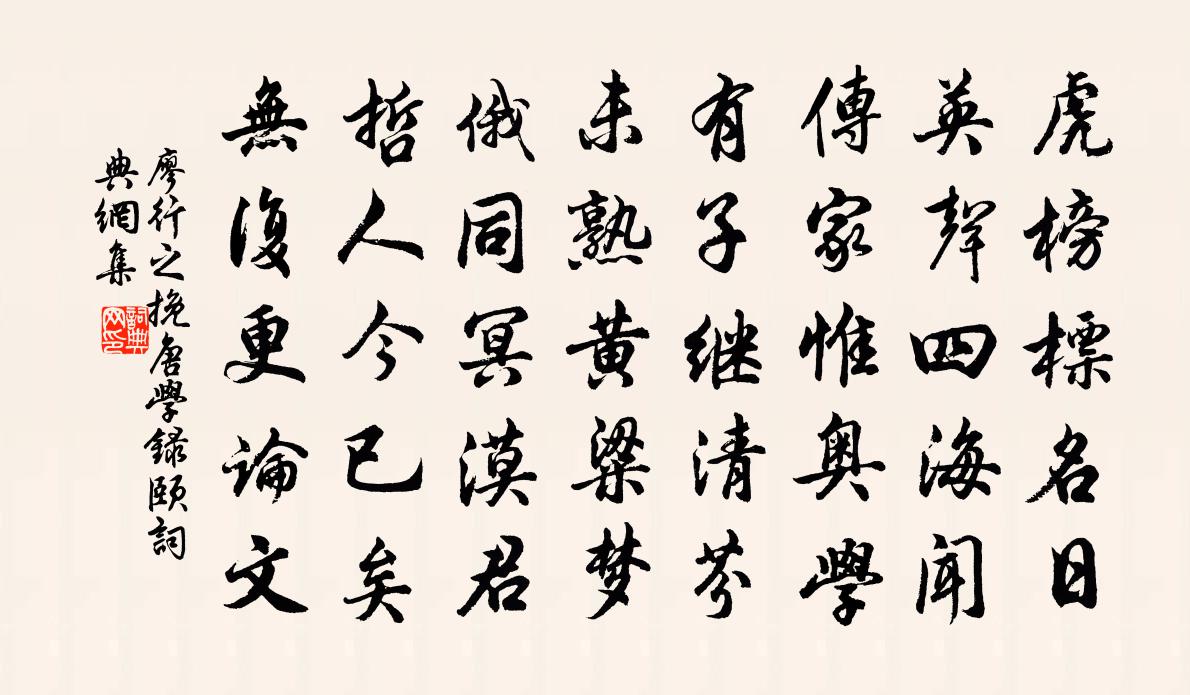 虎榜標名日
英聲四海聞
傳家惟奥學
有子继清芬
未熟黄粱梦
俄同冥漠君
哲人今已矣
無復更論文
廖行之挽唐學録頤詞
典網集
詞典网印